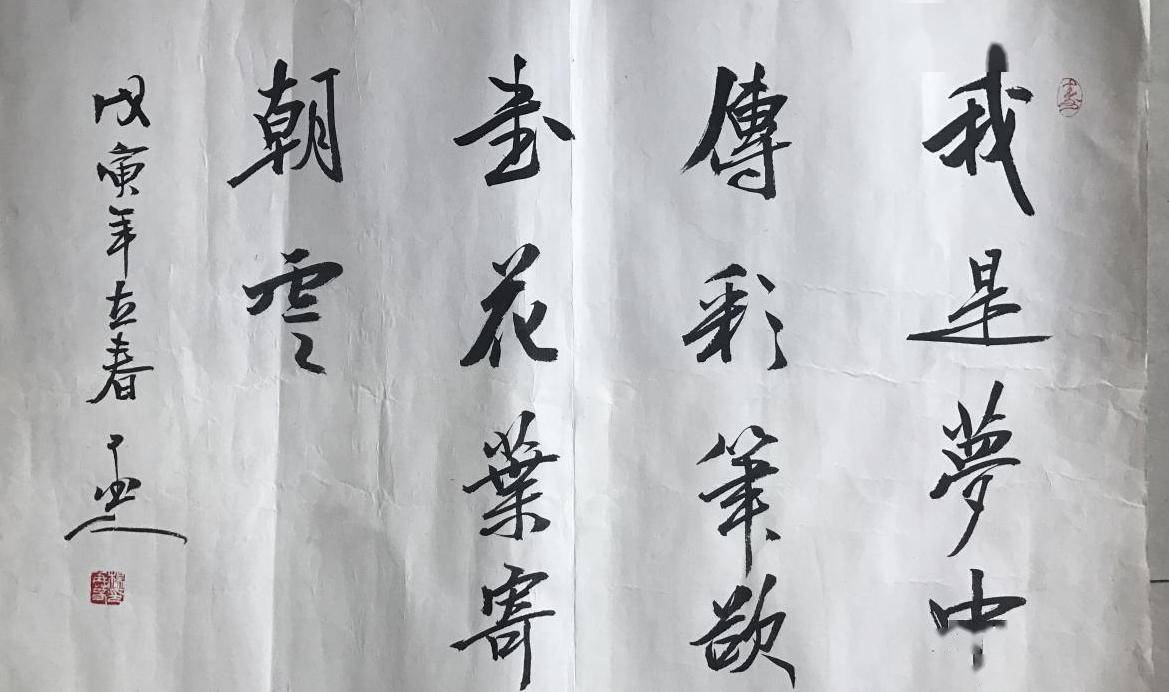 我是夢中
傳彩筆欲
書花葉寄
朝雲
戊寅年立春